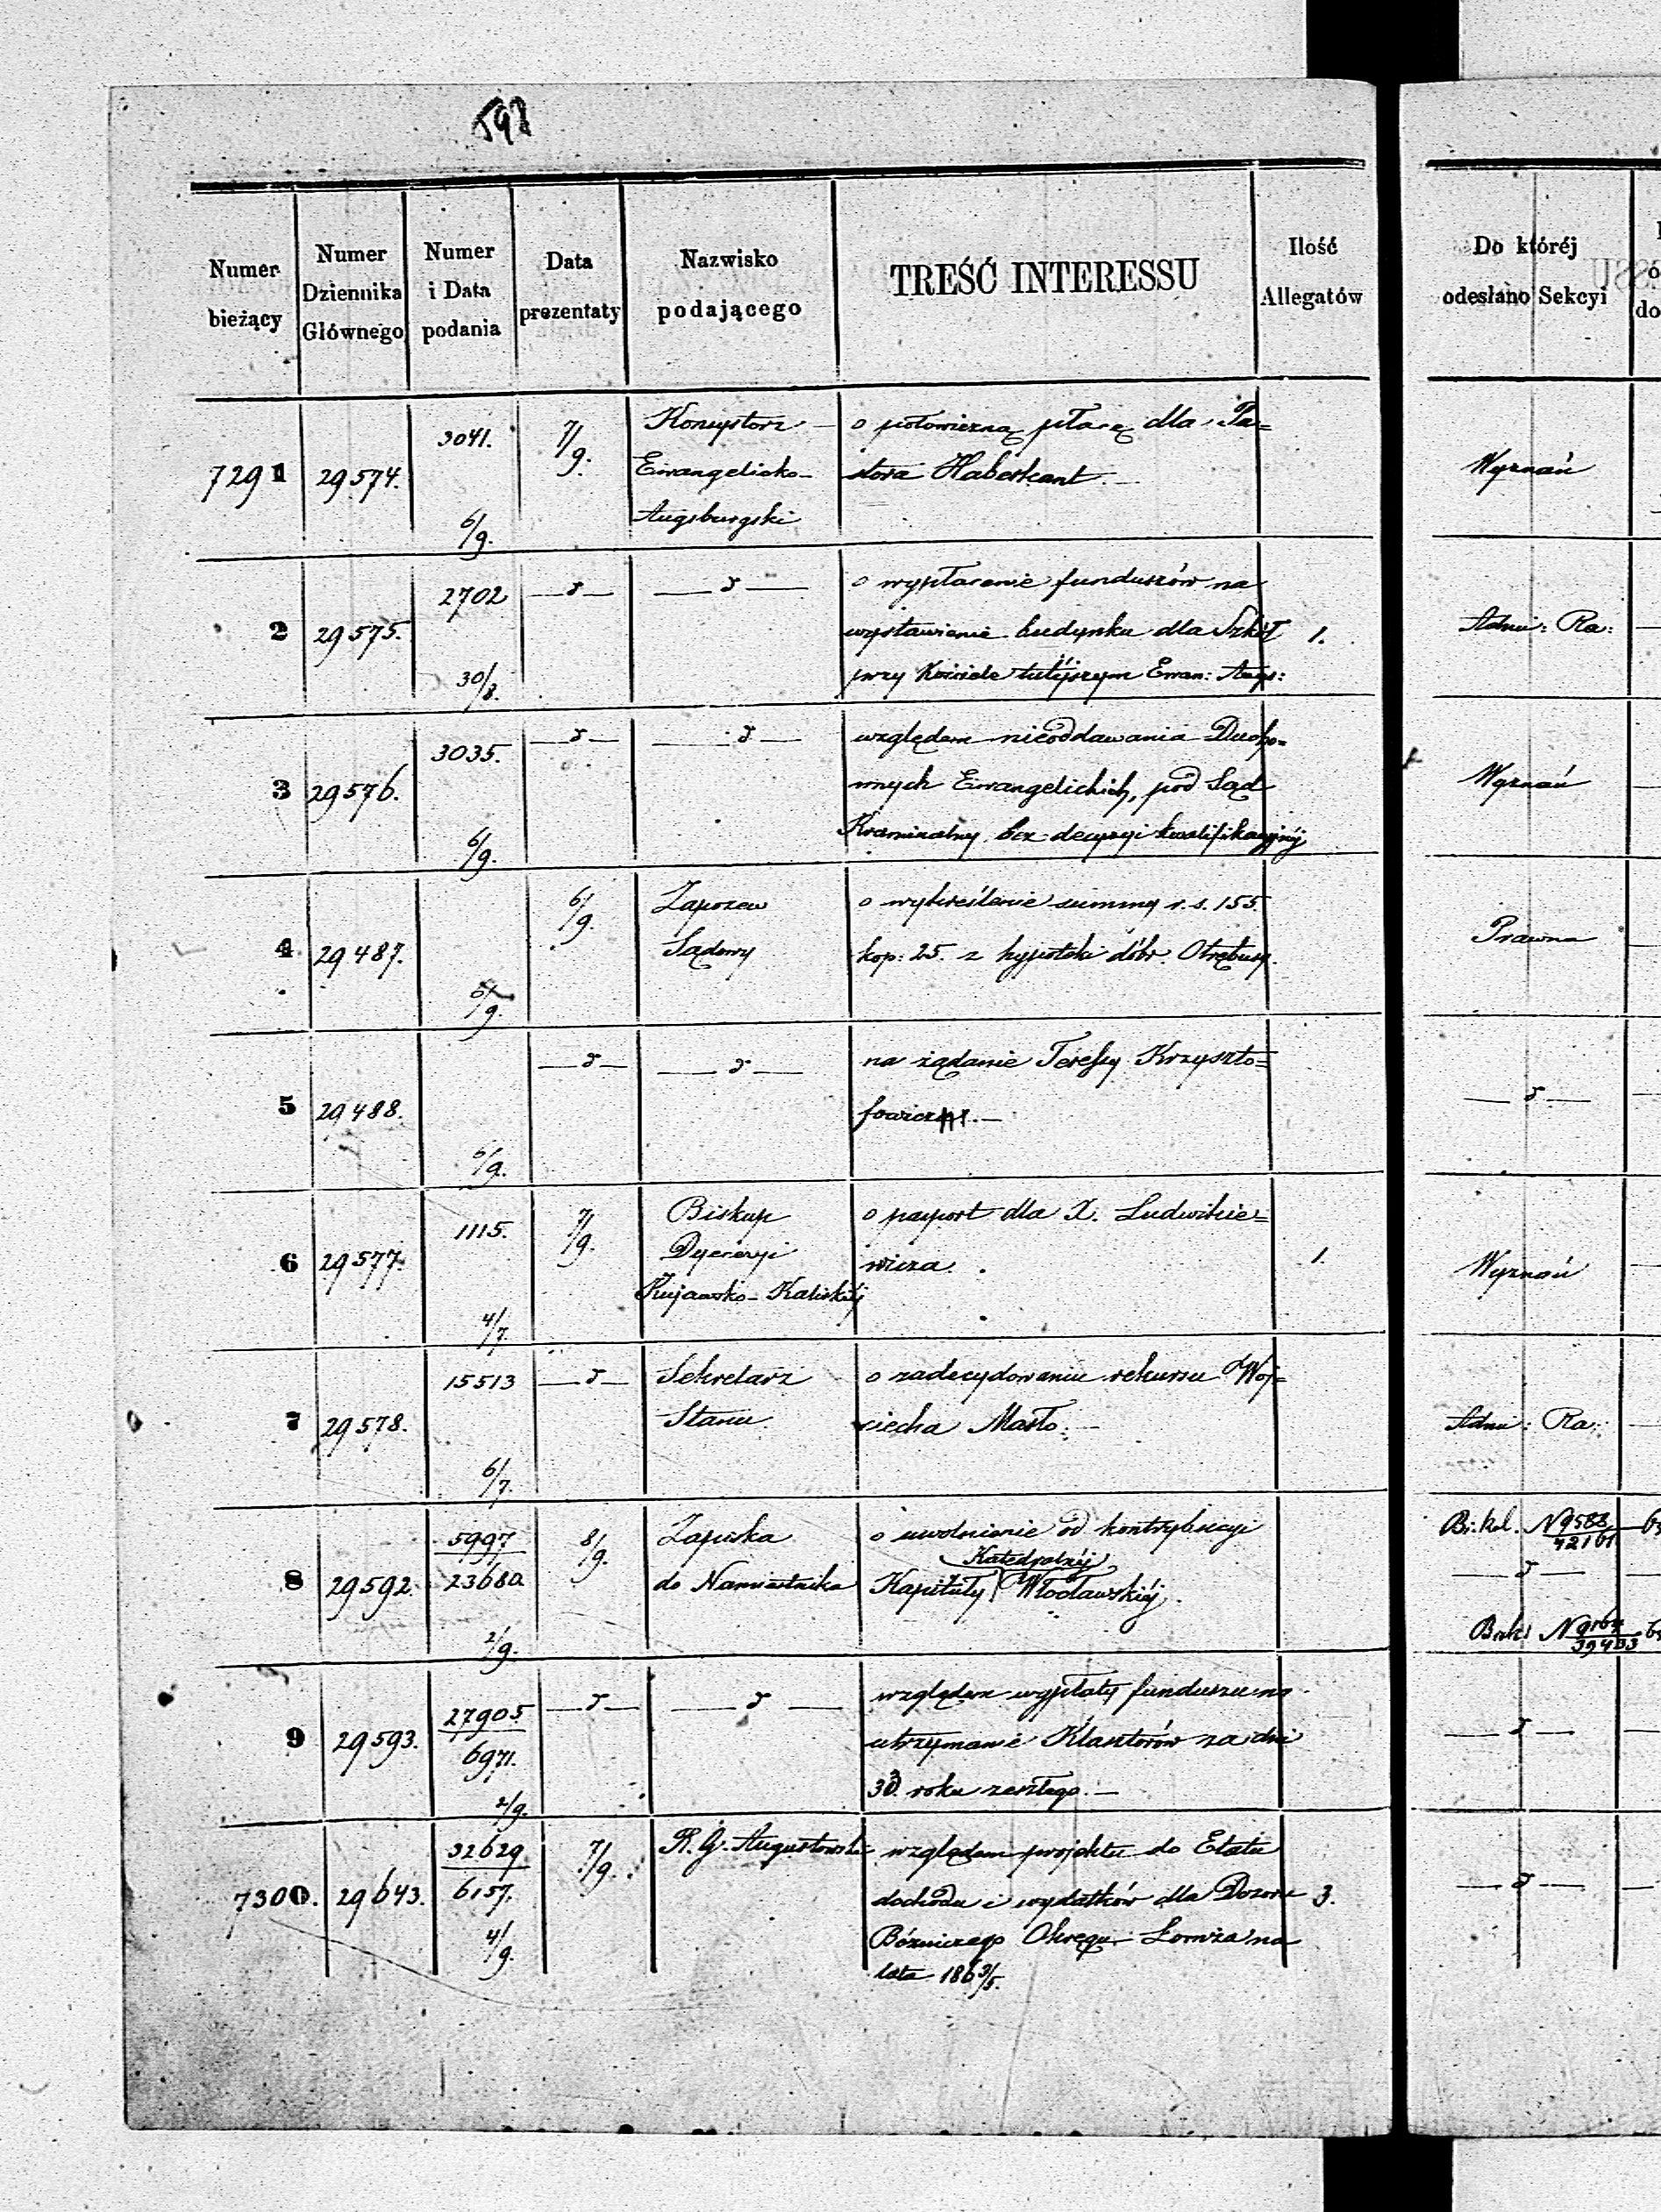 598
Numer bieżący
Numer Dziennika Głównego
Numer i Data podania
Data prezentaty
Nazwisko podającego
TREŚĆ INTERESSU
Ilość Allegatów
Do któréj odesłano Sekcyi
7291
29574.
3041.
6/9.
7/9.
Konsystorz
Ewangelicko-
Augsburgski
o połowiczną płacę dla Pa=
stora Haberkant.
Wyznań
2
29575.
2702
30/8.
o wypłacenie funduszów na
wystawienie budynku dla Szkół
przy Kościele tutéjszym Ewan: Augs:
1.
Adm: Ra:
3
29576.
3035.
6/9.
względem nieoddawania Ducho=
wnych Ewangelickich, pod Sąd
Kryminalny bez decyzyi kwalifikacyjnéj
Wyznań
4
29487.
6/9.
6/9.
Zapozew
Sądowy
o wykreślenie summy r.s. 155.
kop: 25. z hypoteki dóbr. Otrębusy.
Prawna
5
29488.
6/9.
na żądanie Teressy Krzyszto=
6
29577.
1115.
4/7.
7/9.
Biskup
Dyecezyi
Kujawsko-Kaliskiéj
o paszport dla X. Ludwikie=
wicza.
1.
Wyznań
7
29578.
15513
6/7.
Sekretarz
Stanu
o zadecydowaniu rekursu Woj=
ciecha Masło.
Adm: Ra:
8
29592.
5997
23680
2/9.
8/9.
Zapiska
do Namiestnika
o uwolnienie od kontrybucyi
Katedralnéj
Kapituły Włocławskiéj.
9
29593.
27905
6971.
2/9.
względem wypłaty funduszu na
utrzymanie Klasztorów za dni
roku zeszłego.
7300.
29643.
32629
6157.
4/9.
7/9.
R. G. Augustowski
względem projektu do Etatu
dochodu i wydatków dla Dozoru
Bóżniczego Okręgu Łomża na
lata 1863/5.
3.